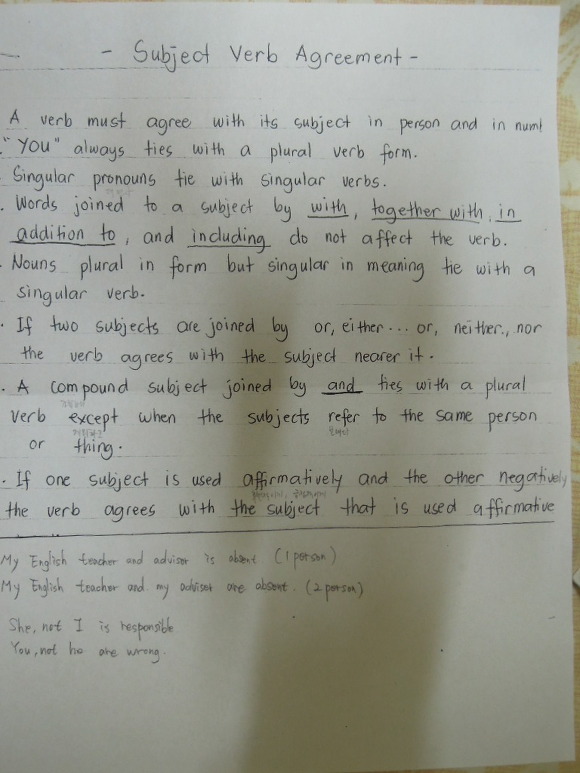 - Subject Verb Agreement -
A verb must agree with its subject in person and in num
. "YOU" always ties with a plural verb form.
. Singular pronouns tie with singular verbs.
. Words joined to a subject by with, together with, in
addition to, and including do not affect the verb.
. Nouns plural in form but singular in meaning tie with a
singular verb.
. If two subjects are joined by or, either... or, neither.., nor
the verb agrees with the subject nearer it.
. A compound subject joined by and ties with a plural
verb except when the subjects refer to the same person
or thing.
. If one subject is used affirmatively and the other negatively
the verb agrees with the subject that is used affirmative
My English teacher and advisor is absent (1 person)
My English teacher and my adviser are absent. (2 person)
She, not I is responsible
You, not he are wrong.